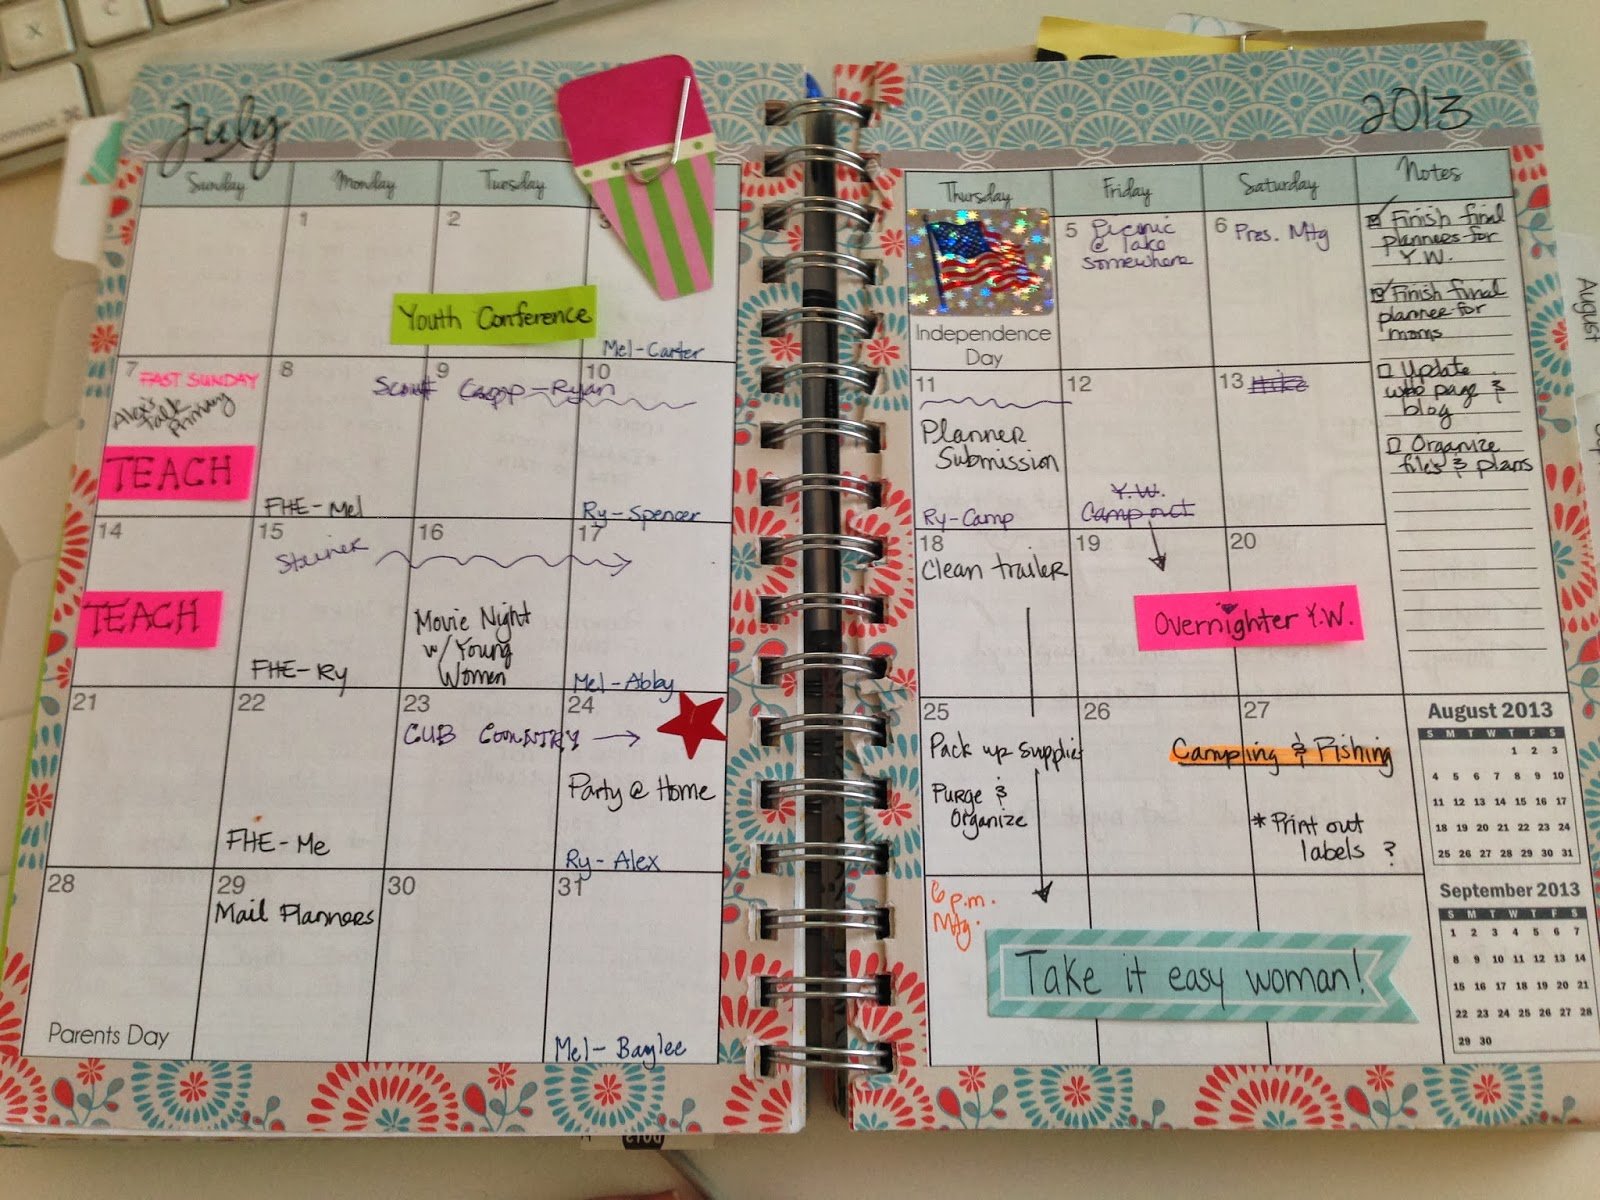 July
Sunday
Monday
Tuesday
1
2
3
Youth Conference
Mel-Carter
7
FAST SUNDAY
Talk
Primary
TEACH
8
FHE-Mel
9
Scout Camp-Ryan
10
Ry-Spencer
14
TEACH
15
Steiner
FHE-Ry
16
Movie Night
w/ Young
Women
17
Mel-Abby
21
22
FHE-Me
23
CUB COUNTRY
24
Party @ Home
Ry-Alex
28
Parents Day
29
Mail Planners
30
31
Mel-Baylee
2013
Thursday
Friday
Saturday
Notes
Independence
Day
5
Picnic
@ Lake
Somewhere
6
Pres. Mtg
11
Planner
Submission
Ry-Camp
12
Y.W.
Camp out
13
Hike
18
Clean trailer
19
20
Overnighter Y.W.
25
Pack up supplies
Purge &
Organize
26
27
Camping & Fishing
* Print out
labels ?
6 p.m.
Mtg.
Take it easy woman!
Finish final
planners for
Y.W.
Finish final
planner for
moms
Update
web page &
blog
Organize
files & plans
August 2013
S M T W T F S
1 2 3
4 5 6 7 8 9 10
11 12 13 14 15 16 17
18 19 20 21 22 23 24
25 26 27 28 29 30 31
September 2013
S M T W T F S
1 2 3 4 5 6 7
8 9 10 11 12 13 14
15 16 17 18 19 20 21
22 23 24 25 26 27 28
29 30
August
X
C
command ⌘